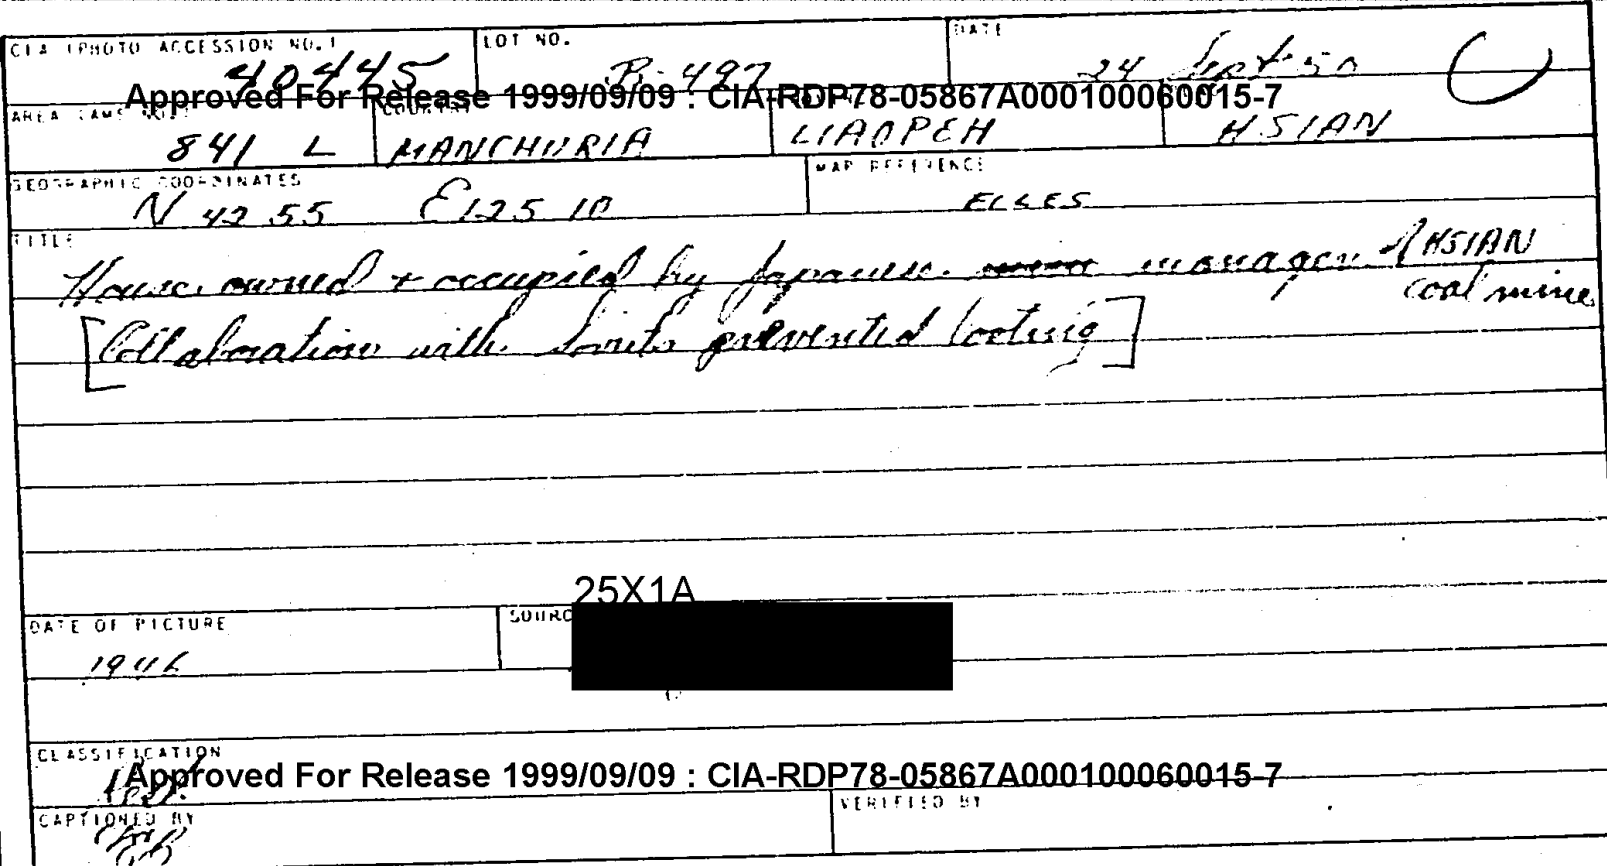 CIA (PHOTO ACCESSION NO.) LOT NO. DATE
40445 24 Sept 50
Approved For Release 1999/09/09 : CIA-RDP78-05867A000100060015-7
841 L MANCHURIA LIAOPEH HSIAN
GEOGRAPHIC COORDINATES MAP REFERENCE
N 42 55 E 125 10
TITLE
House owned + occupied by Japanese manager of HSIAN
coal mine
[Collaboration with Soviets prevented looting]
25X1A
DATE OF PICTURE
1946
CLASSIFICATION
Approved For Release 1999/09/09 : CIA-RDP78-05867A000100060015-7
CAPTIONED BY VERIFIED BY